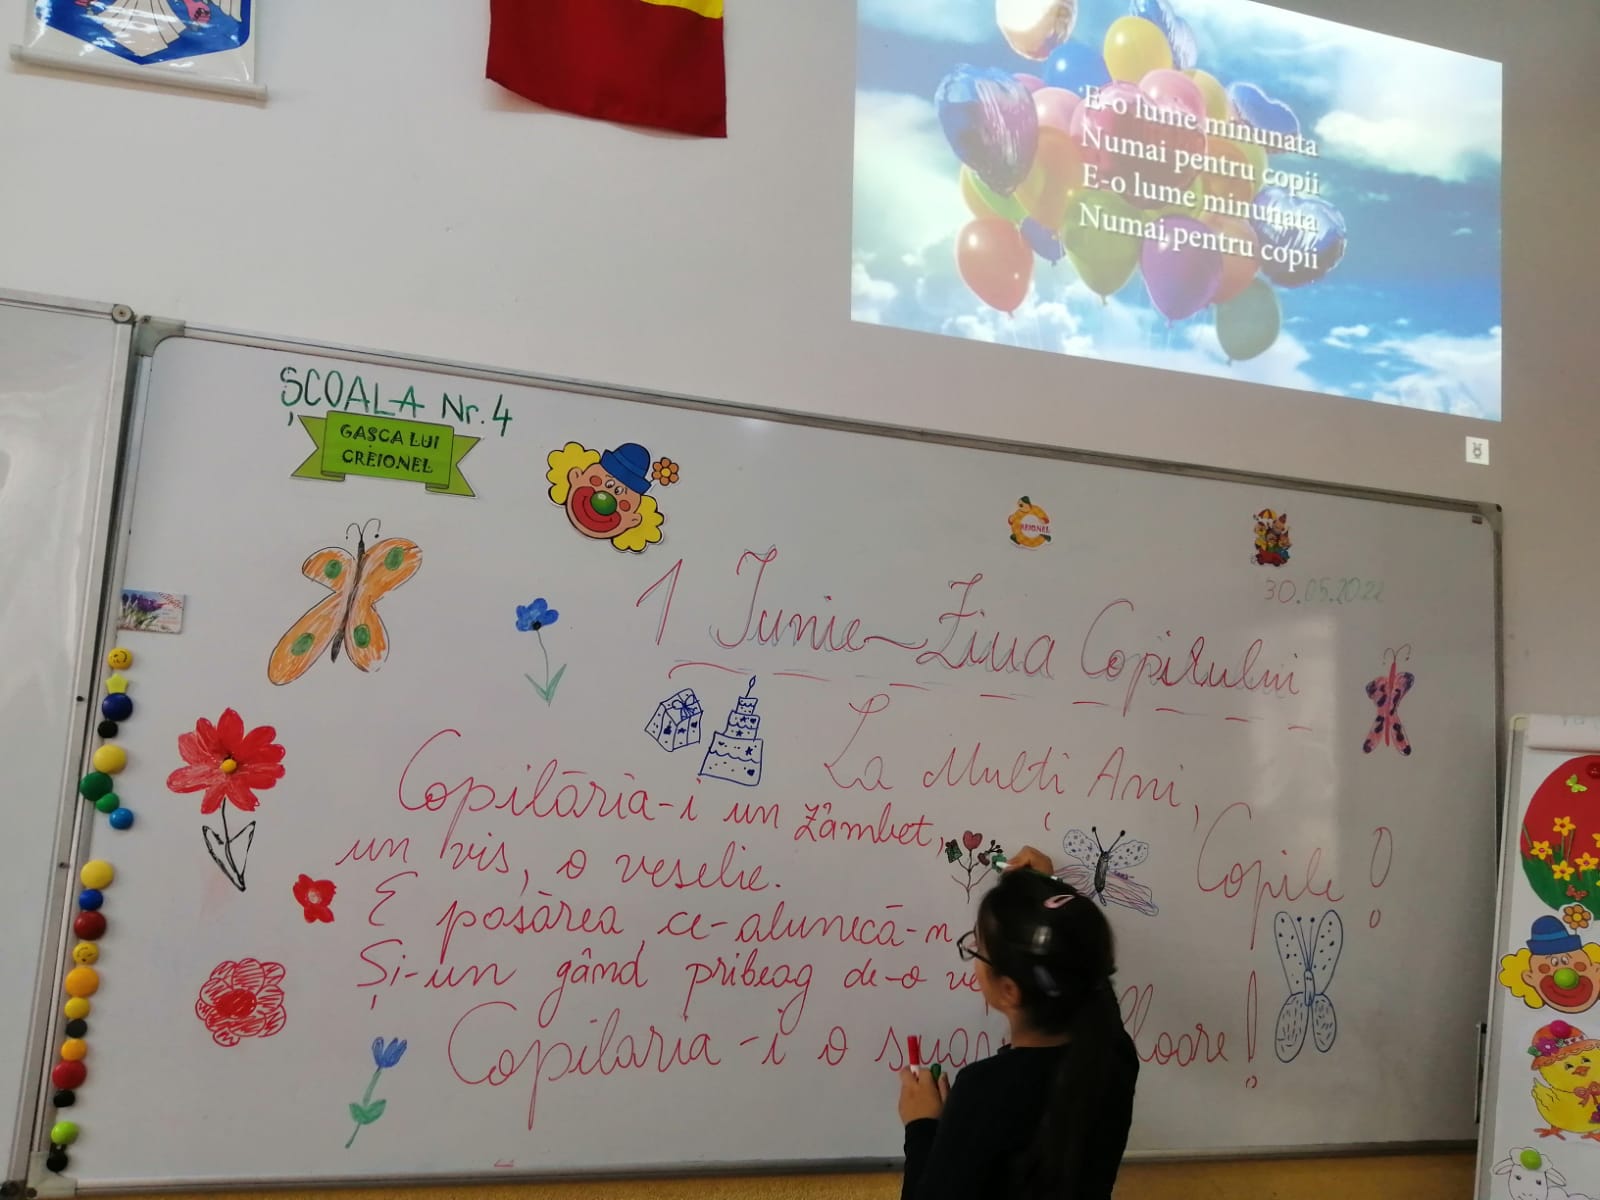 E-o lume minunata
Numai pentru copii
E-o lume minunata
Numai pentru copii
ȘCOALA Nr. 4
GAȘCA LUI
CREIONEL
CREIONEL
30.05.2022
1 Iunie - Ziua Copilului
La Multi Ani,
Copile!
Copilăria-i un zâmbet,
un vis, o veselie.
E pasărea ce-alunecă-n
Și-un gând pribeag de-o
Copilaria-i o